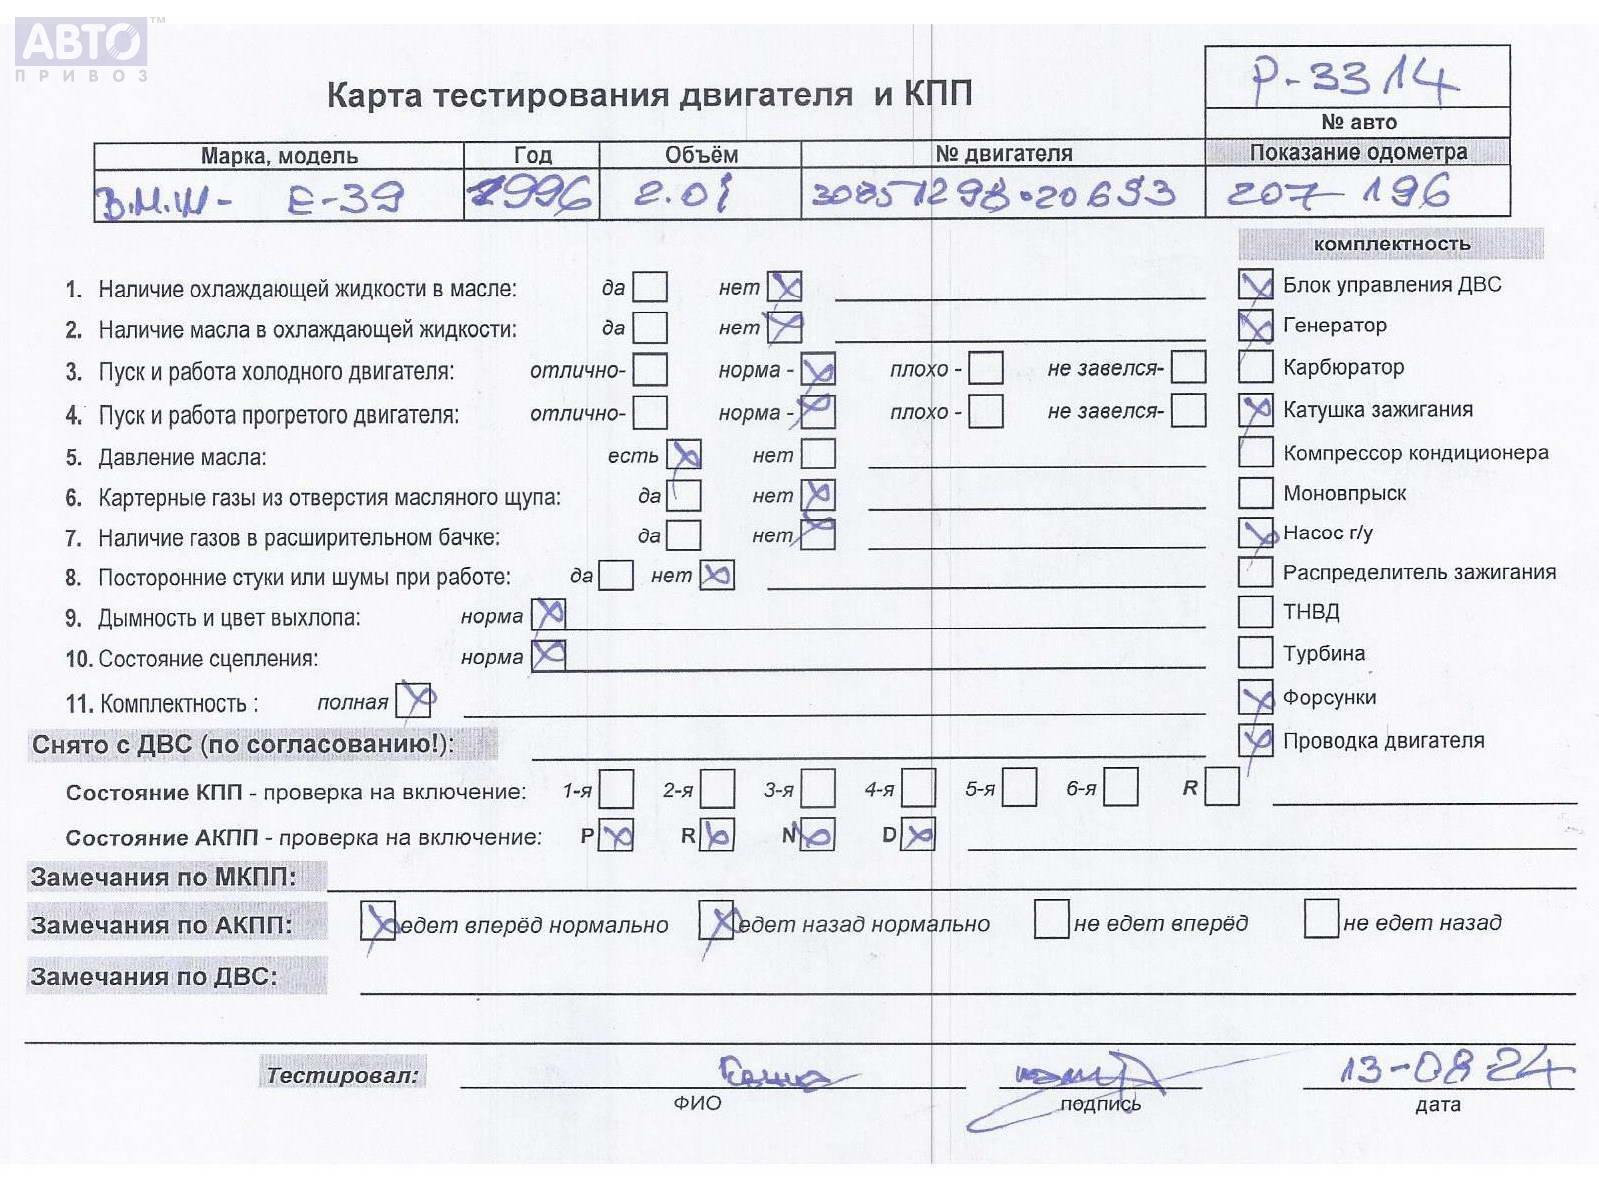 АВТО™
ПРИВОЗ
P-3314
Карта тестирования двигателя и КПП
№ авто
Марка, модель Год Объём № двигателя Показание одометра
B.M.W- E-39 1996 2.0i 30851298·20693 207-196
комплектность
1. Наличие охлаждающей жидкости в масле: да нет
Блок управления ДВС
2. Наличие масла в охлаждающей жидкости: да нет
Генератор
3. Пуск и работа холодного двигателя: отлично- норма - плохо - не завелся-
Карбюратор
4. Пуск и работа прогретого двигателя: отлично- норма - плохо - не завелся-
Катушка зажигания
5. Давление масла: есть нет
Компрессор кондиционера
6. Картерные газы из отверстия масляного щупа: да нет
Моновпрыск
7. Наличие газов в расширительном бачке: да нет
Насос г/у
8. Посторонние стуки или шумы при работе: да нет
Распределитель зажигания
9. Дымность и цвет выхлопа: норма
ТНВД
10. Состояние сцепления: норма
Турбина
11. Комплектность : полная
Форсунки
Снято с ДВС (по согласованию!):
Проводка двигателя
Состояние КПП - проверка на включение: 1-я 2-я 3-я 4-я 5-я 6-я R
Состояние АКПП - проверка на включение: P R N D
Замечания по МКПП:
Замечания по АКПП: едет вперёд нормально едет назад нормально не едет вперёд не едет назад
Замечания по ДВС:
Тестировал: 13-08-24
ФИО подпись дата